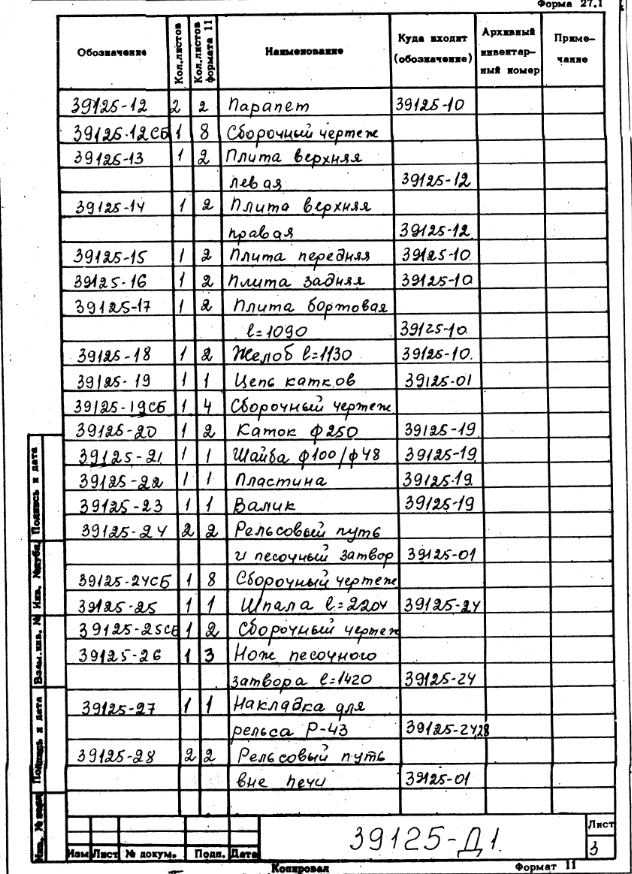 Форма 27.1
Обозначение Кол.листов Кол.листов формата 11 Наименование Куда входит (обозначение) Архивный инвентарный номер Примечание
39125-12 2 2 Парапет 39125-10
39125-12СБ 1 8 Сборочный чертеж
39125-13 1 2 Плита верхняя
левая 39125-12
39125-14 1 2 Плита верхняя
правая 39125-12
39125-15 1 2 Плита передняя 39125-10
39125-16 1 2 Плита задняя 39125-10
39125-17 1 2 Плита бортовая
ℓ=1090 39125-10
39125-18 1 2 Желоб ℓ=1130 39125-10
39125-19 1 1 Цепь катков 39125-01
39125-19СБ 1 4 Сборочный чертеж
39125-20 1 2 Каток ф250 39125-19
39125-21 1 1 Шайба ф100/ф48 39125-19
39125-22 1 1 Пластина 39125-19
39125-23 1 1 Валик 39125-19
39125-24 2 2 Рельсовый путь
и песочный затвор 39125-01
39125-24СБ 1 8 Сборочный чертеж
39125-25 1 1 Шпала ℓ=2204 39125-24
39125-25СБ 1 2 Сборочный чертеж
39125-26 1 3 Нож песочного
затвора ℓ=1420 39125-24
39125-27 1 1 Накладка для
рельса Р-43 39125-24,28
39125-28 2 2 Рельсовый путь
вне печи 39125-01
Подпись и дата
Инв. № дубл.
Взам. инв. №
Подпись и дата
Инв. № подл.
39125-Д1
Лист
3
Изм Лист № докум. Подп. Дата
Копировал Формат 11